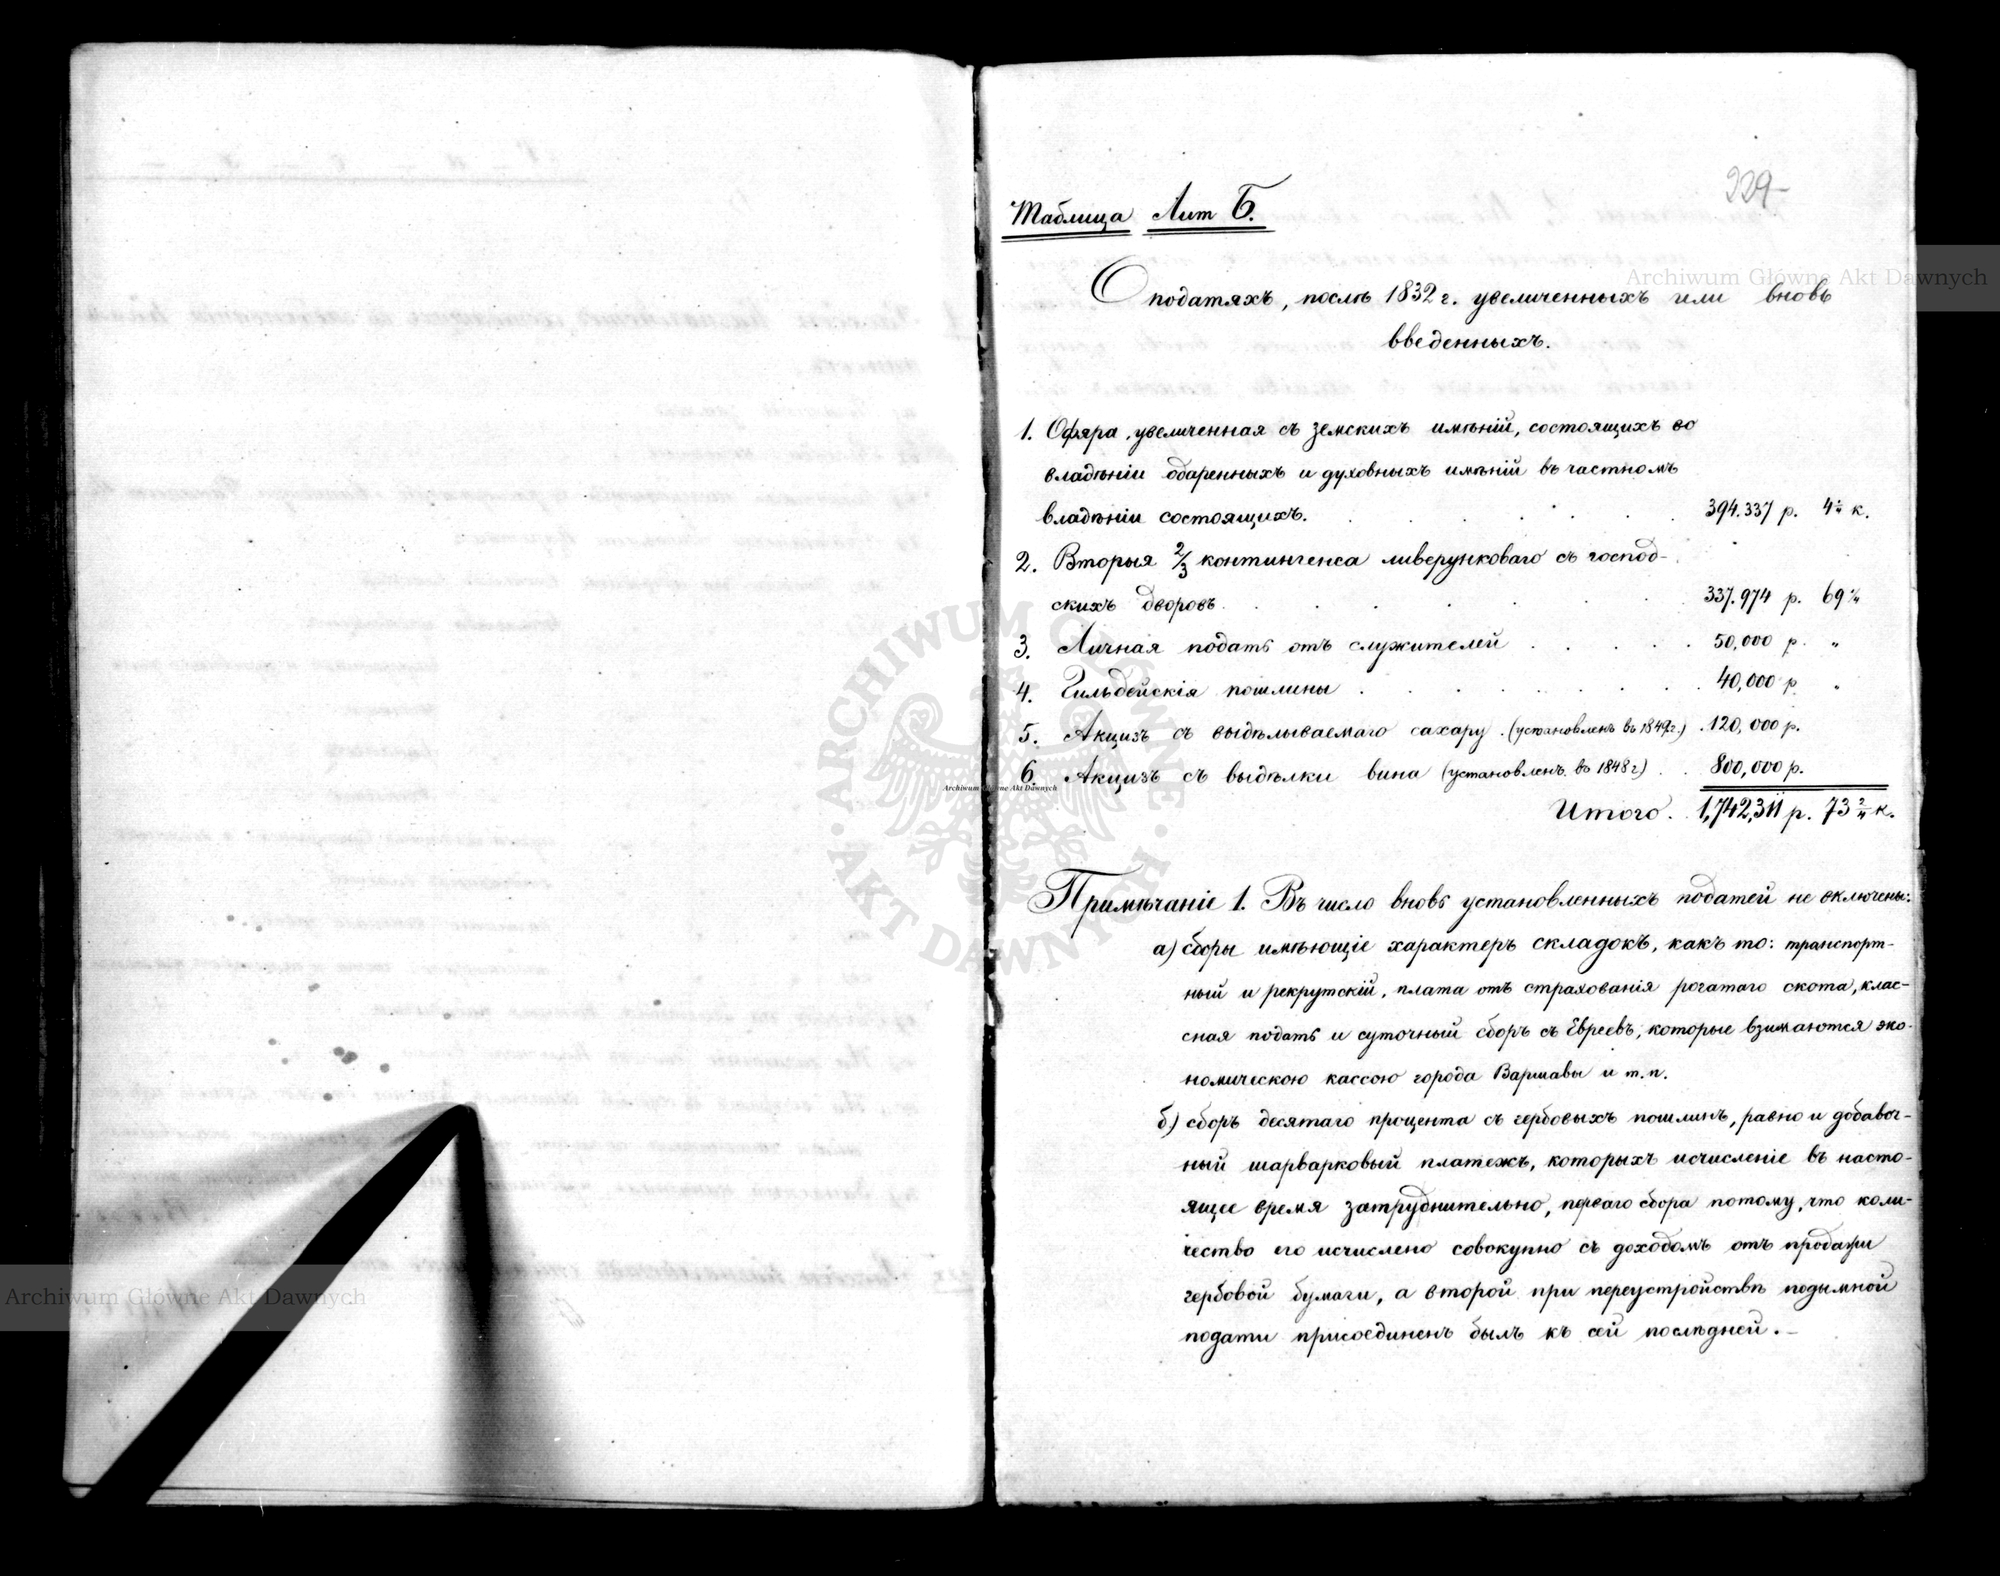 229
Таблица Лит Б.
О податяхъ, послѣ 1832 г. увеличенныхъ или вновь
введенныхъ.
1. Офяра, увеличенная съ земскихъ имѣній, состоящихъ во
владѣніи одаренныхъ и духовныхъ имѣній въ частномъ
владѣніи состоящихъ. 394.337 р. 4 к.
2. Вторыя 2/3 контингенса ливерунковаго съ господ-
скихъ дворовъ. 337.974 р. 69
3. Личная подать отъ служителей 50,000 р. "
4. Гильдейскія пошлины 40,000 р "
5. Акцизъ съ выдѣлываемаго сахару. (установленъ въ 1849г.) 120,000 р.
6. Акцизъ съ выдѣлки вина (установленъ въ 1848 г) 800,000 р.
Итого. 1,742,311 р. 73 2/4 к.
Примѣчаніе 1. Въ число вновь установленныхъ податей не включены:
а) сборы имѣющіе характеръ складокъ, какъ то: транспорт-
ный и рекрутскій, плата отъ страхованія рогатаго скота, клас-
сная подать и суточный сборъ съ Евреевъ, которые взимаются эко-
номическою кассою города Варшавы и т.п.
б) сборъ десятаго процента съ гербовыхъ пошлинъ, равно и добавоч-
ный шарварковый платежъ, которыхъ исчисленіе въ насто-
ящее время затруднительно, перваго сбора потому, что коли-
чество его исчислено совокупно съ доходомъ отъ продажи
гербовой бумаги, а второй при переустройствѣ подымной
подати присоединенъ былъ къ сей послѣдней.
Archiwum Główne Akt Dawnych
Archiwum Główne Akt Dawnych
Archiwum Główne Akt Dawnych
ARCHIWUM GŁÓWNE AKT DAWNYCH